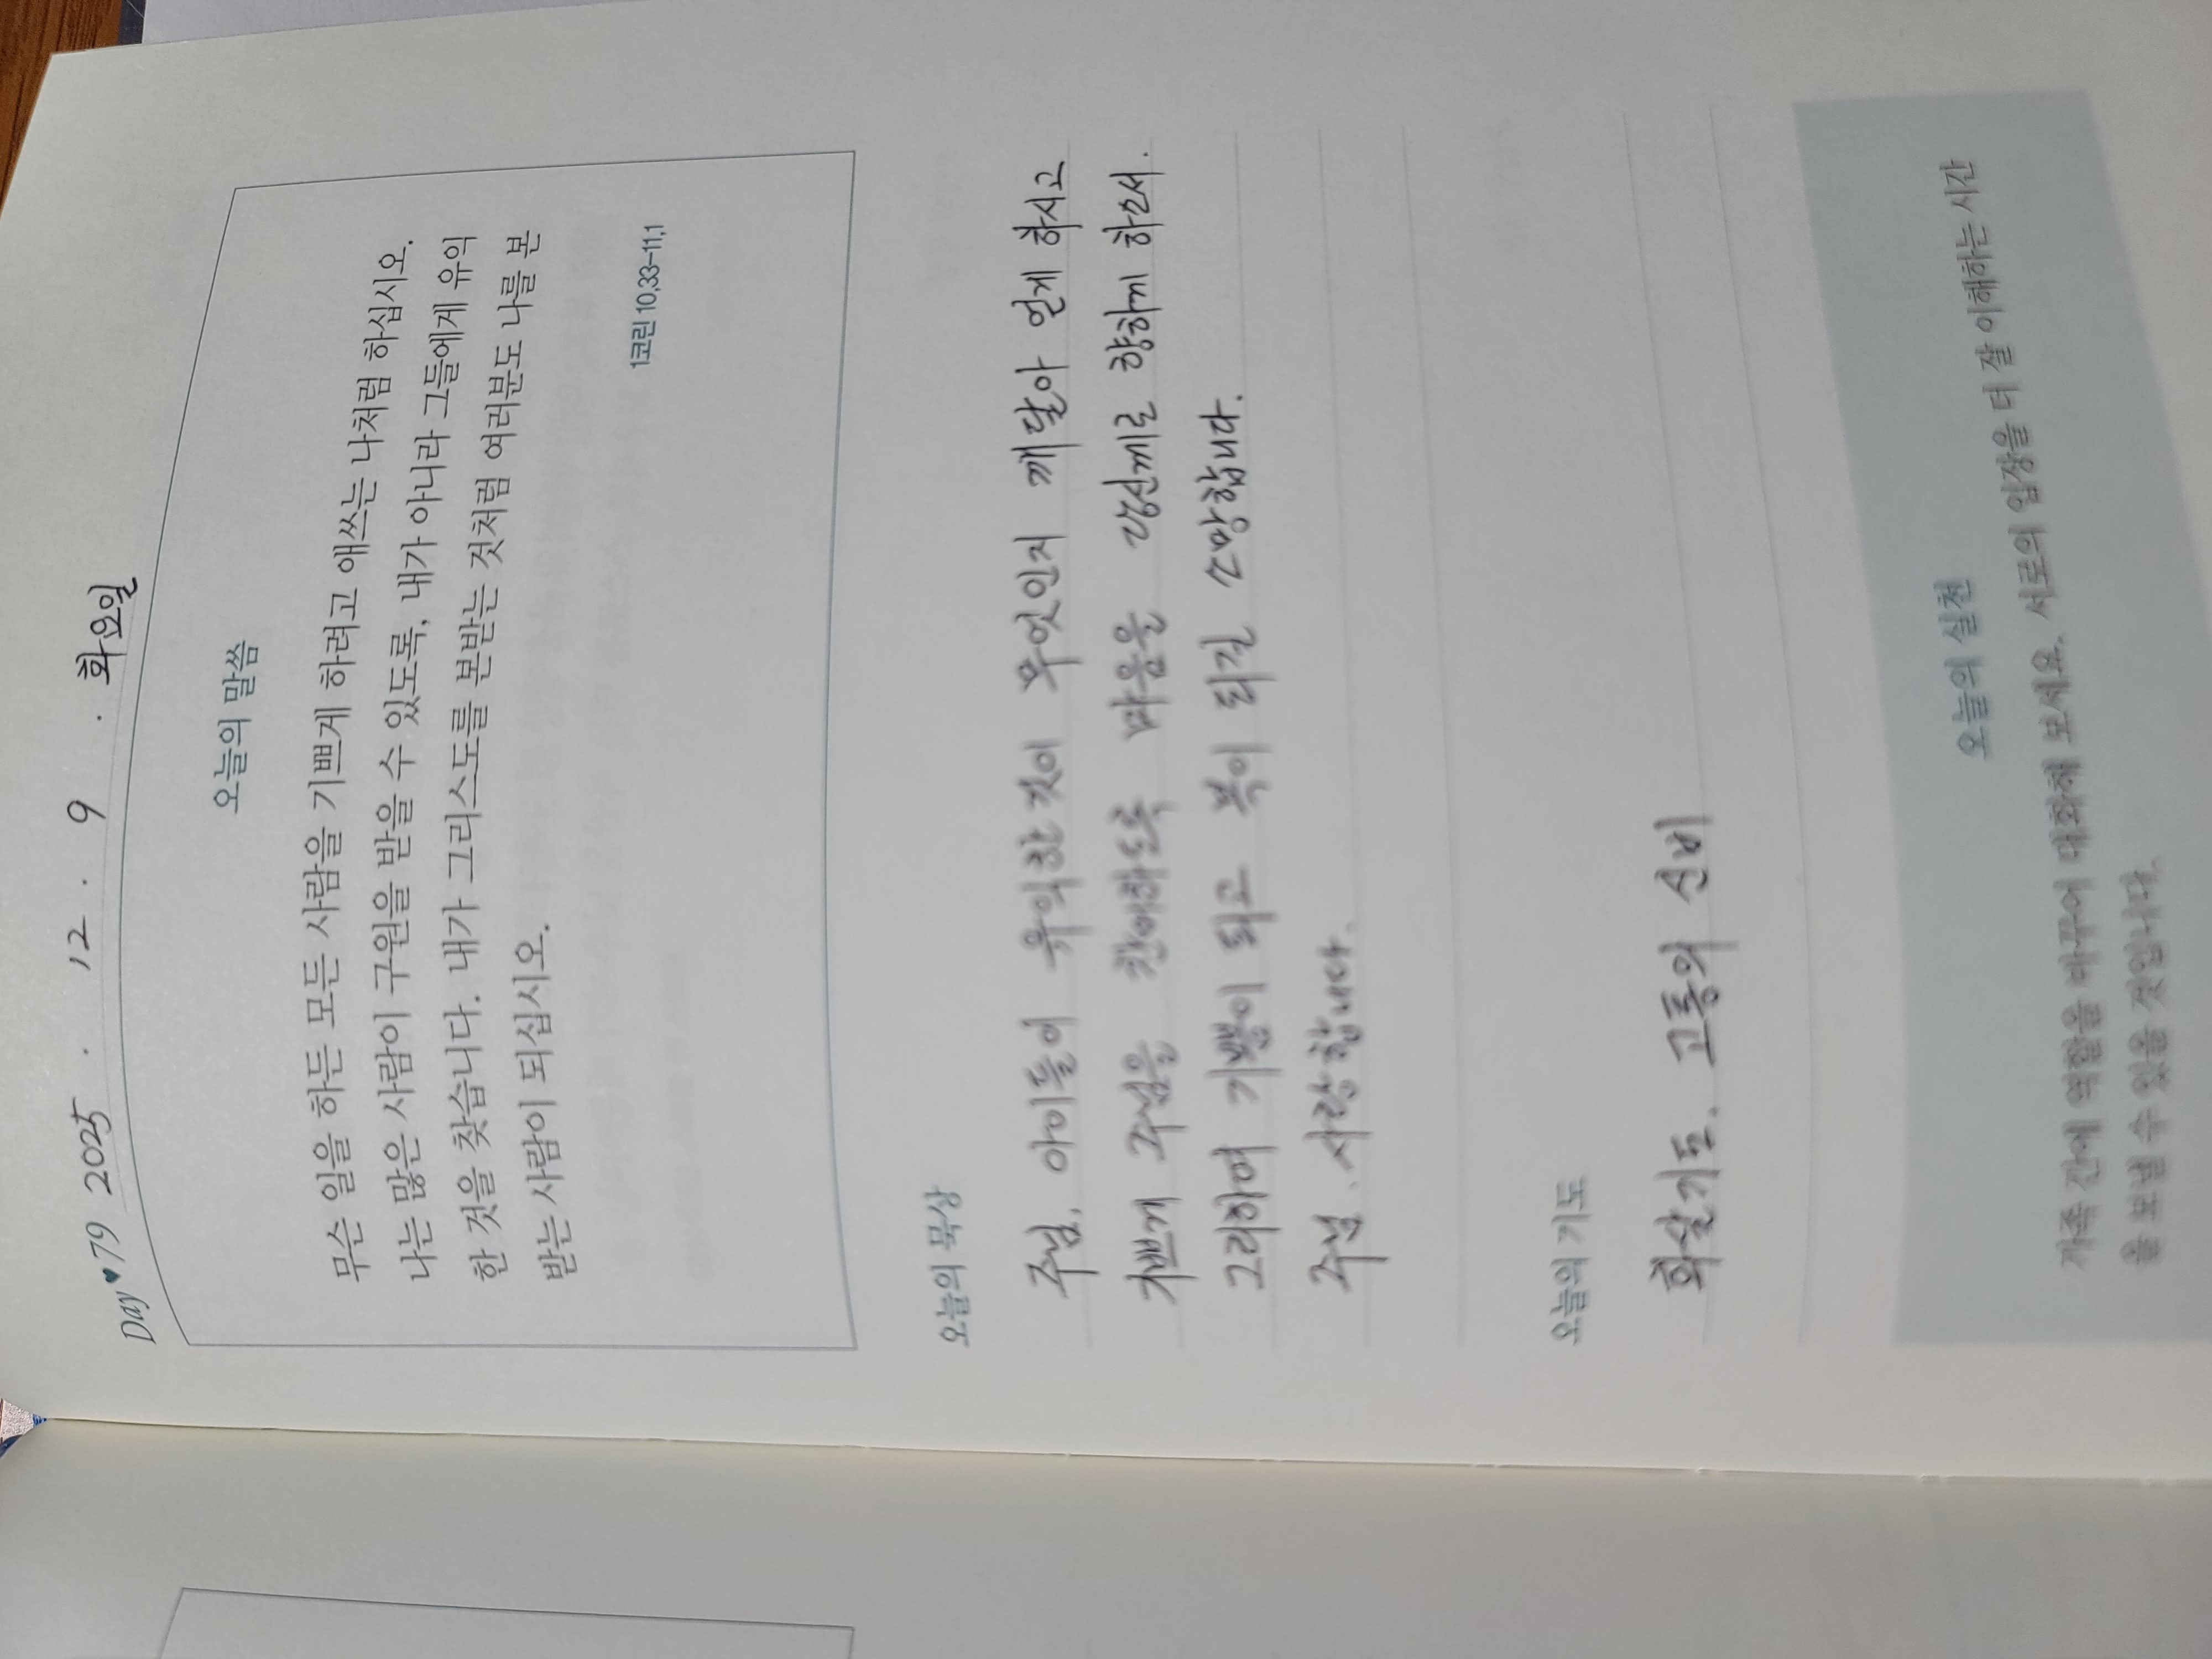 Day♥79 2025 . 12 . 9 . 화요일
오늘의 말씀
무슨 일을 하든 모든 사람을 기쁘게 하려고 애쓰는 나처럼 하십시오.
나는 많은 사람이 구원을 받을 수 있도록, 내가 아니라 그들에게 유익
한 것을 찾습니다. 내가 그리스도를 본받는 것처럼 여러분도 나를 본
받는 사람이 되십시오.
1코린 10,33-11,1
오늘의 묵상
주님, 아이들이 유익한 것이 무엇인지 깨달아 얻게 하시고
기쁘게 주님을 찬미하도록 마음을 당신께로 향하게 하소서.
그리하여 기쁨이 되고 복이 되길 소망합니다.
주님. 사랑합니다.
오늘의 기도
화살기도. 고통의 신비
오늘의 실천
가족 간에 역할을 바꾸어 대화해 보세요. 서로의 입장을 더 잘 이해하는 시간
을 보낼 수 있을 것입니다.